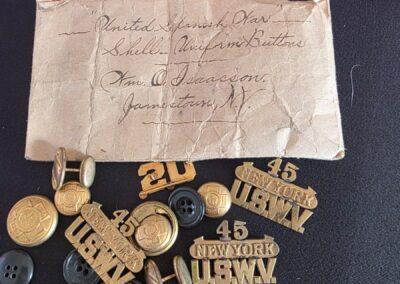 "United Spanish War"
Shell - Uniform Buttons
Wm. O. Isaacson.
Jamestown, N.Y.
20
45
NEW YORK
U.S.W.V.
45
NEW YORK
U.S.W.V.
45
NEW YORK
U.S.W.V.